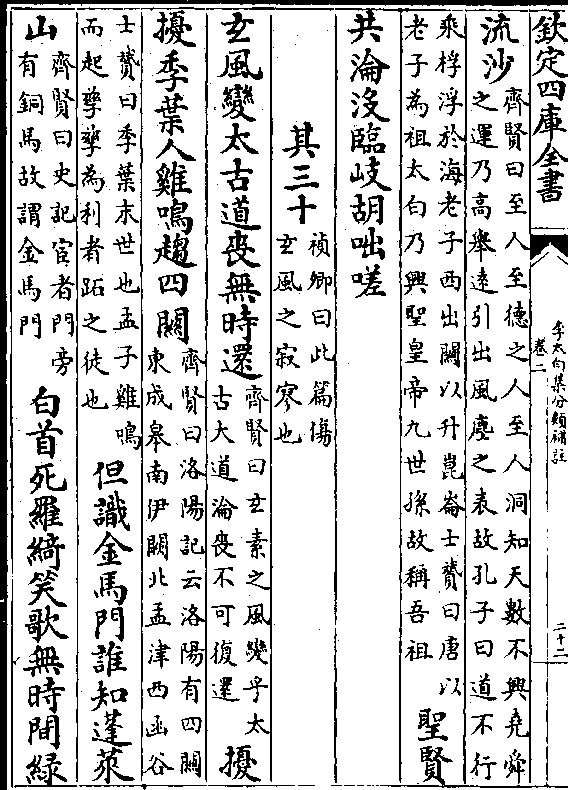 欽定四庫全書
李太白集分類補註
卷二
二十二
流沙齊賢曰至人至德之人至人洞知天數不興堯舜
之運乃高舉遠引出風塵之表故孔子曰道不行
乘桴浮於海老子西出關以升崑崙士贇曰唐以
老子為祖太白乃興聖皇帝九世孫故稱吾祖聖賢
共淪沒臨岐胡咄嗟
其三十禎卿曰此篇傷
玄風之寂寥也
玄風變太古道喪無時還齊賢曰玄素之風變乎太
古大道淪喪不可復還擾
擾季葉人雞鳴趨四關齊賢曰洛陽記云洛陽有四關
東成皋南伊闕北孟津西函谷
士贇曰季葉末世也孟子雞鳴
而起孳孳為利者跖之徒也但識金馬門誰知蓬萊
山齊賢曰史記宦者門旁
有銅馬故謂金馬門白首死羅綺笑歌無時閒綠